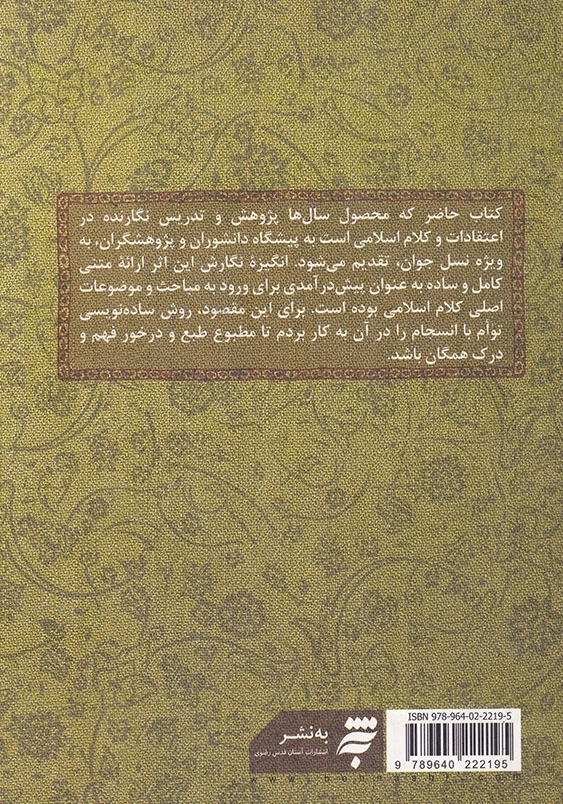 کتاب حاضر که محصول سال‌ها پژوهش و تدریس نگارنده در
اعتقادات و کلام اسلامی است به پیشگاه دانشوران و پژوهشگران، به
ویژه نسل جوان، تقدیم می‌شود. انگیزهٔ نگارش این اثر ارائهٔ متنی
کامل و ساده به عنوان پیش‌درآمدی برای ورود به مباحث و موضوعات
اصلی کلام اسلامی بوده است. برای این مقصود، روش ساده‌نویسی
توأم با انسجام را در آن به کار بردم تا مطبوع طبع و درخور فهم و
درک همگان باشد.
ISBN 978-964-02-2219-5
به‌نشر
انتشارات آستان قدس رضوی
9 789640 222195